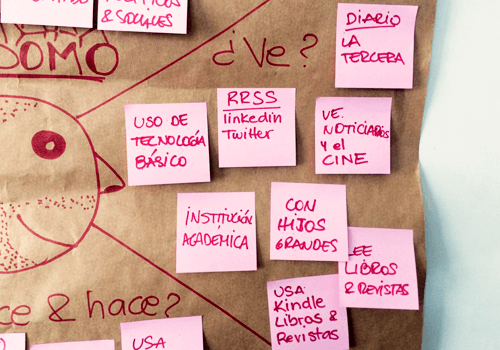 & SOCIALES
DOMO
¿Ve?
DIARIO
LA
TERCERA
USO DE
TECNOLOGÍA
BÁSICO
RRSS
linkedin
Twitter
VE.
NOTICIARIOS
y el
CINE
INSTITUCIÓN
ACADEMICA
CON
HIJOS
GRANDES
LEE
LIBROS
& REVISTAS
USA
Kindle
Libros &
Revistas
ce & hace?
USA